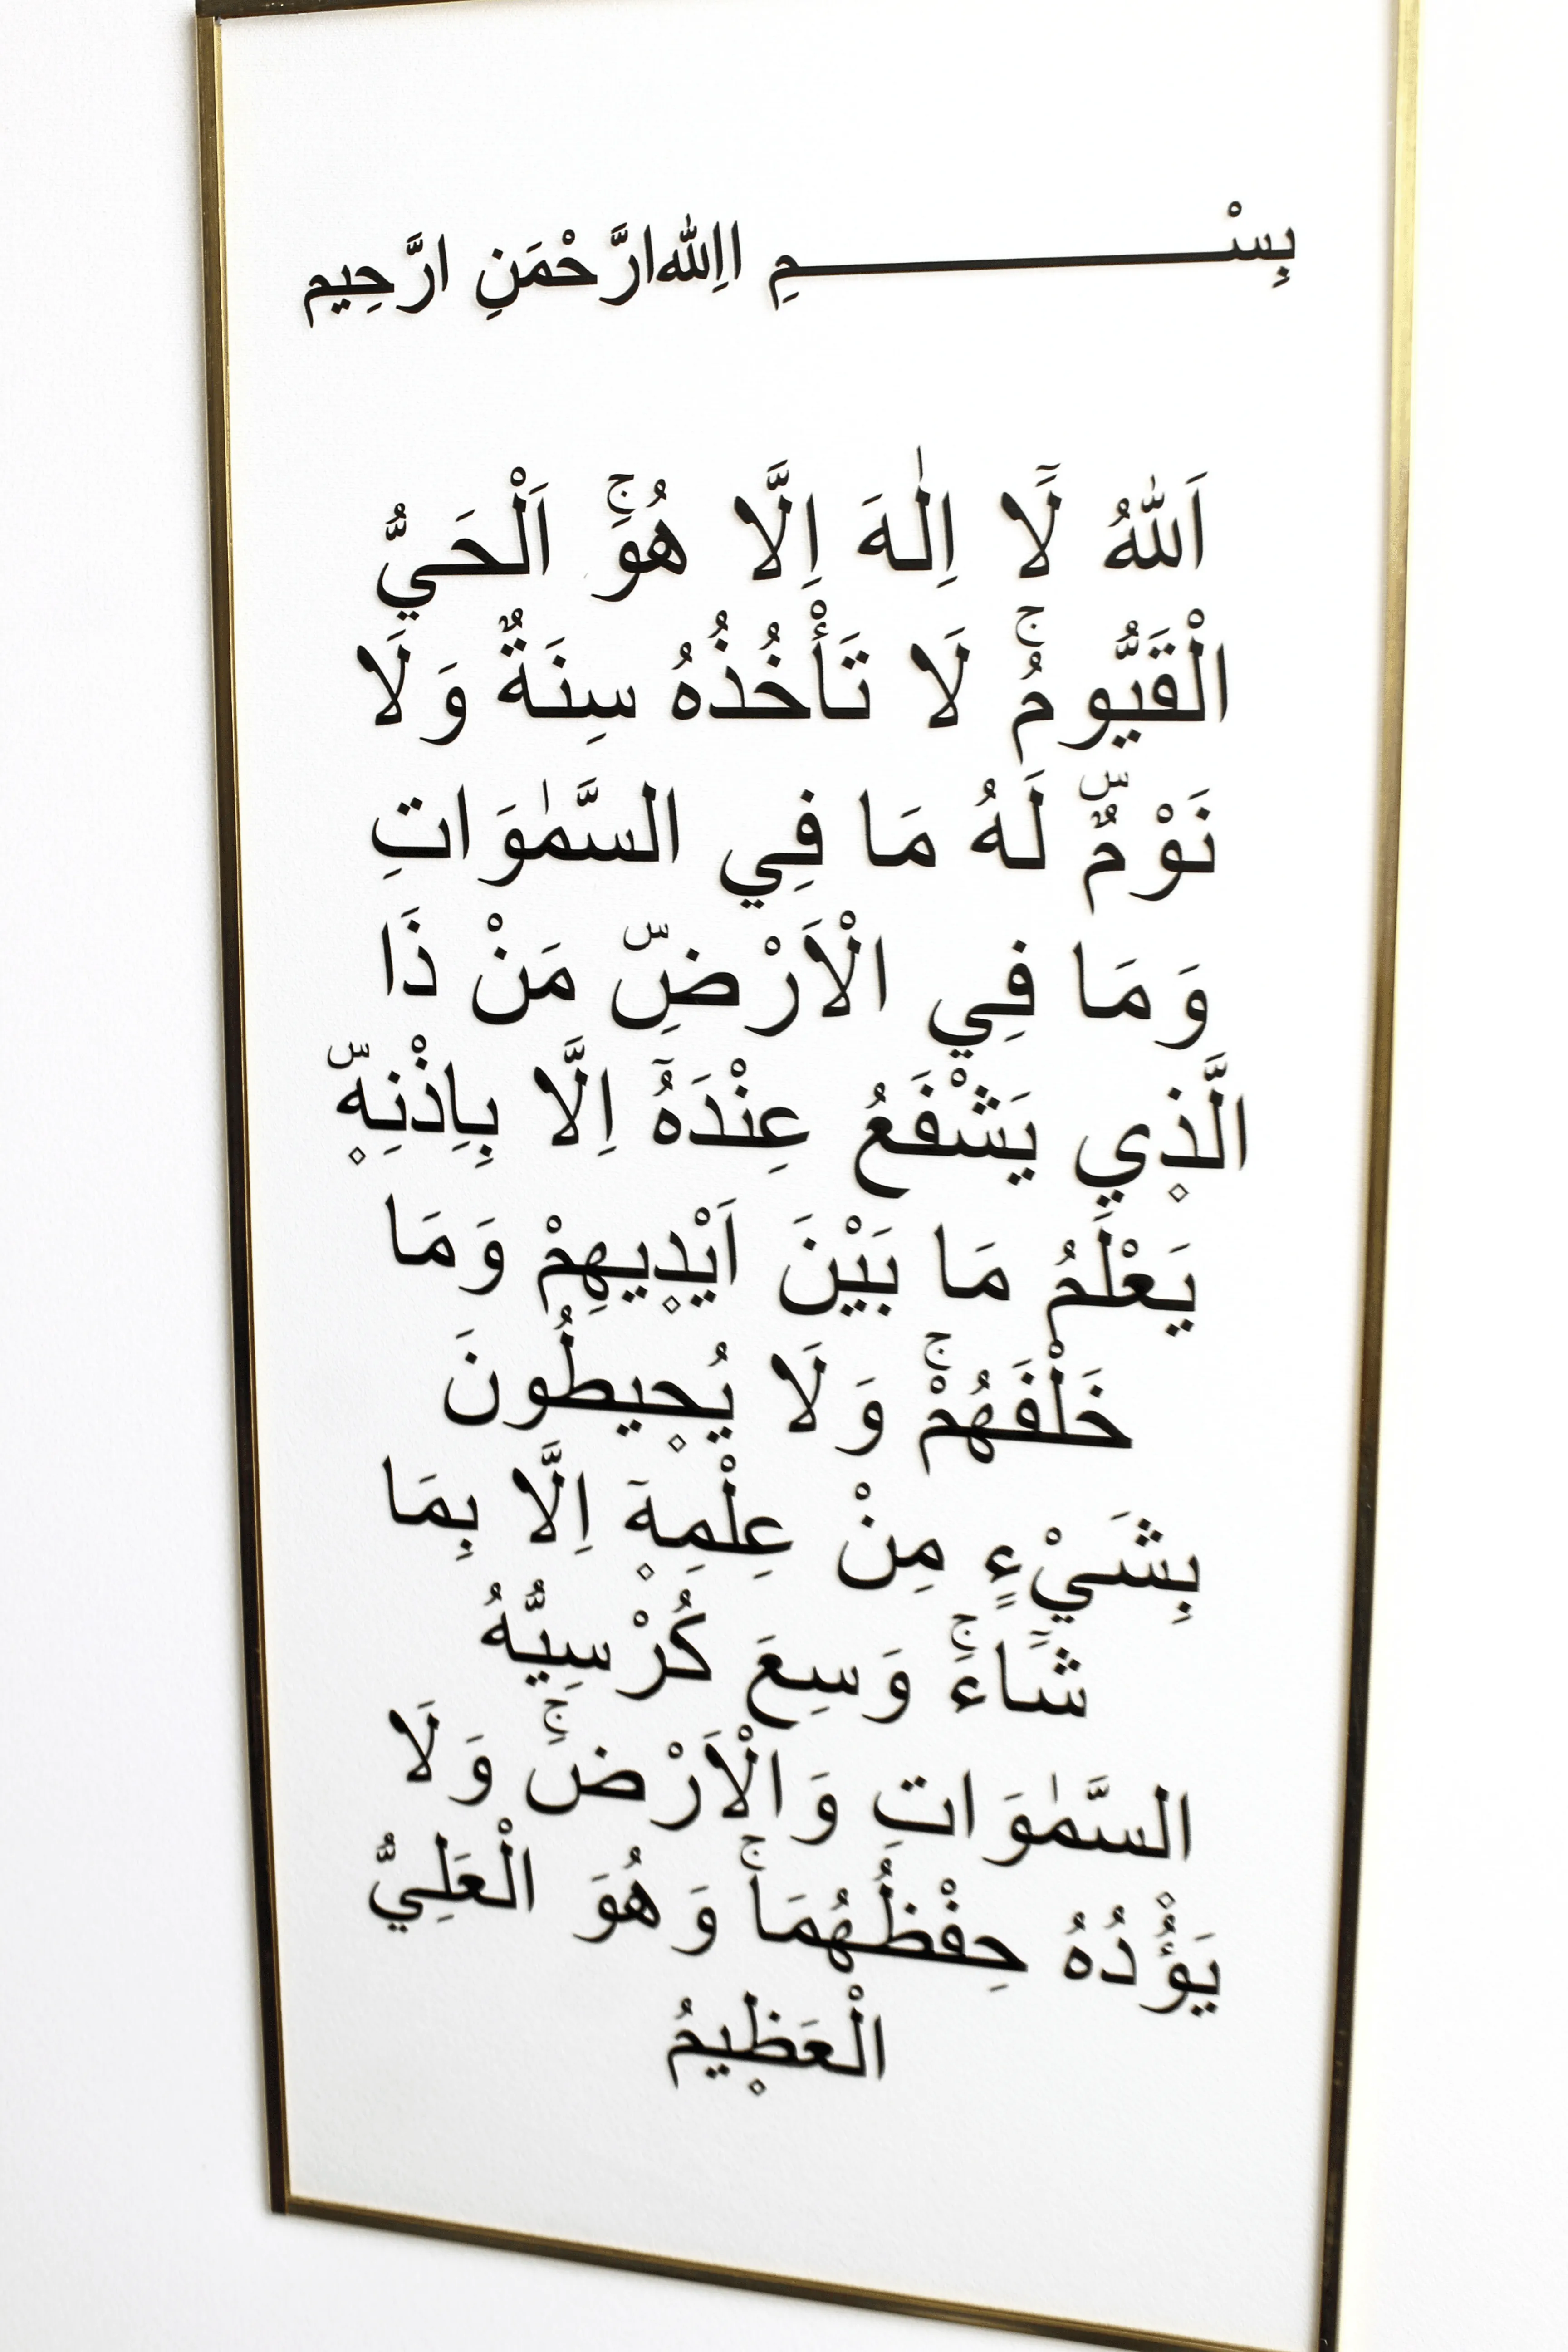 بِسْــــــــــمِ االِلّٰهِ ارَّحْمَنِ ارَّحِيم
اَللّٰهُ لَٓا اِلٰهَ اِلَّا هُوَۚ اَلْحَيُّ
الْقَيُّومُۚ لَا تَأْخُذُهُ سِنَةٌ وَلَا
نَوْمٌۜ لَهُ مَا فِي السَّمٰوَاتِ
وَمَا فِي الْاَرْضِۜ مَنْ ذَا
الَّذ۪ي يَشْفَعُ عِنْدَهُٓ اِلَّا بِاِذْنِه۪ۜ
يَعْلَمُ مَا بَيْنَ اَيْد۪يهِمْ وَمَا
خَلْفَهُمْۚ وَلَا يُح۪يطُونَ
بِشَيْءٍ مِنْ عِلْمِه۪ٓ اِلَّا بِمَا
شَٓاءَۚ وَسِعَ كُرْسِيُّهُ
السَّمٰوَاتِ وَالْاَرْضَۚ وَلَا
يَؤُ۫دُهُ حِفْظُهُمَاۚ وَهُوَ الْعَلِيُّ
الْعَظ۪يمُ